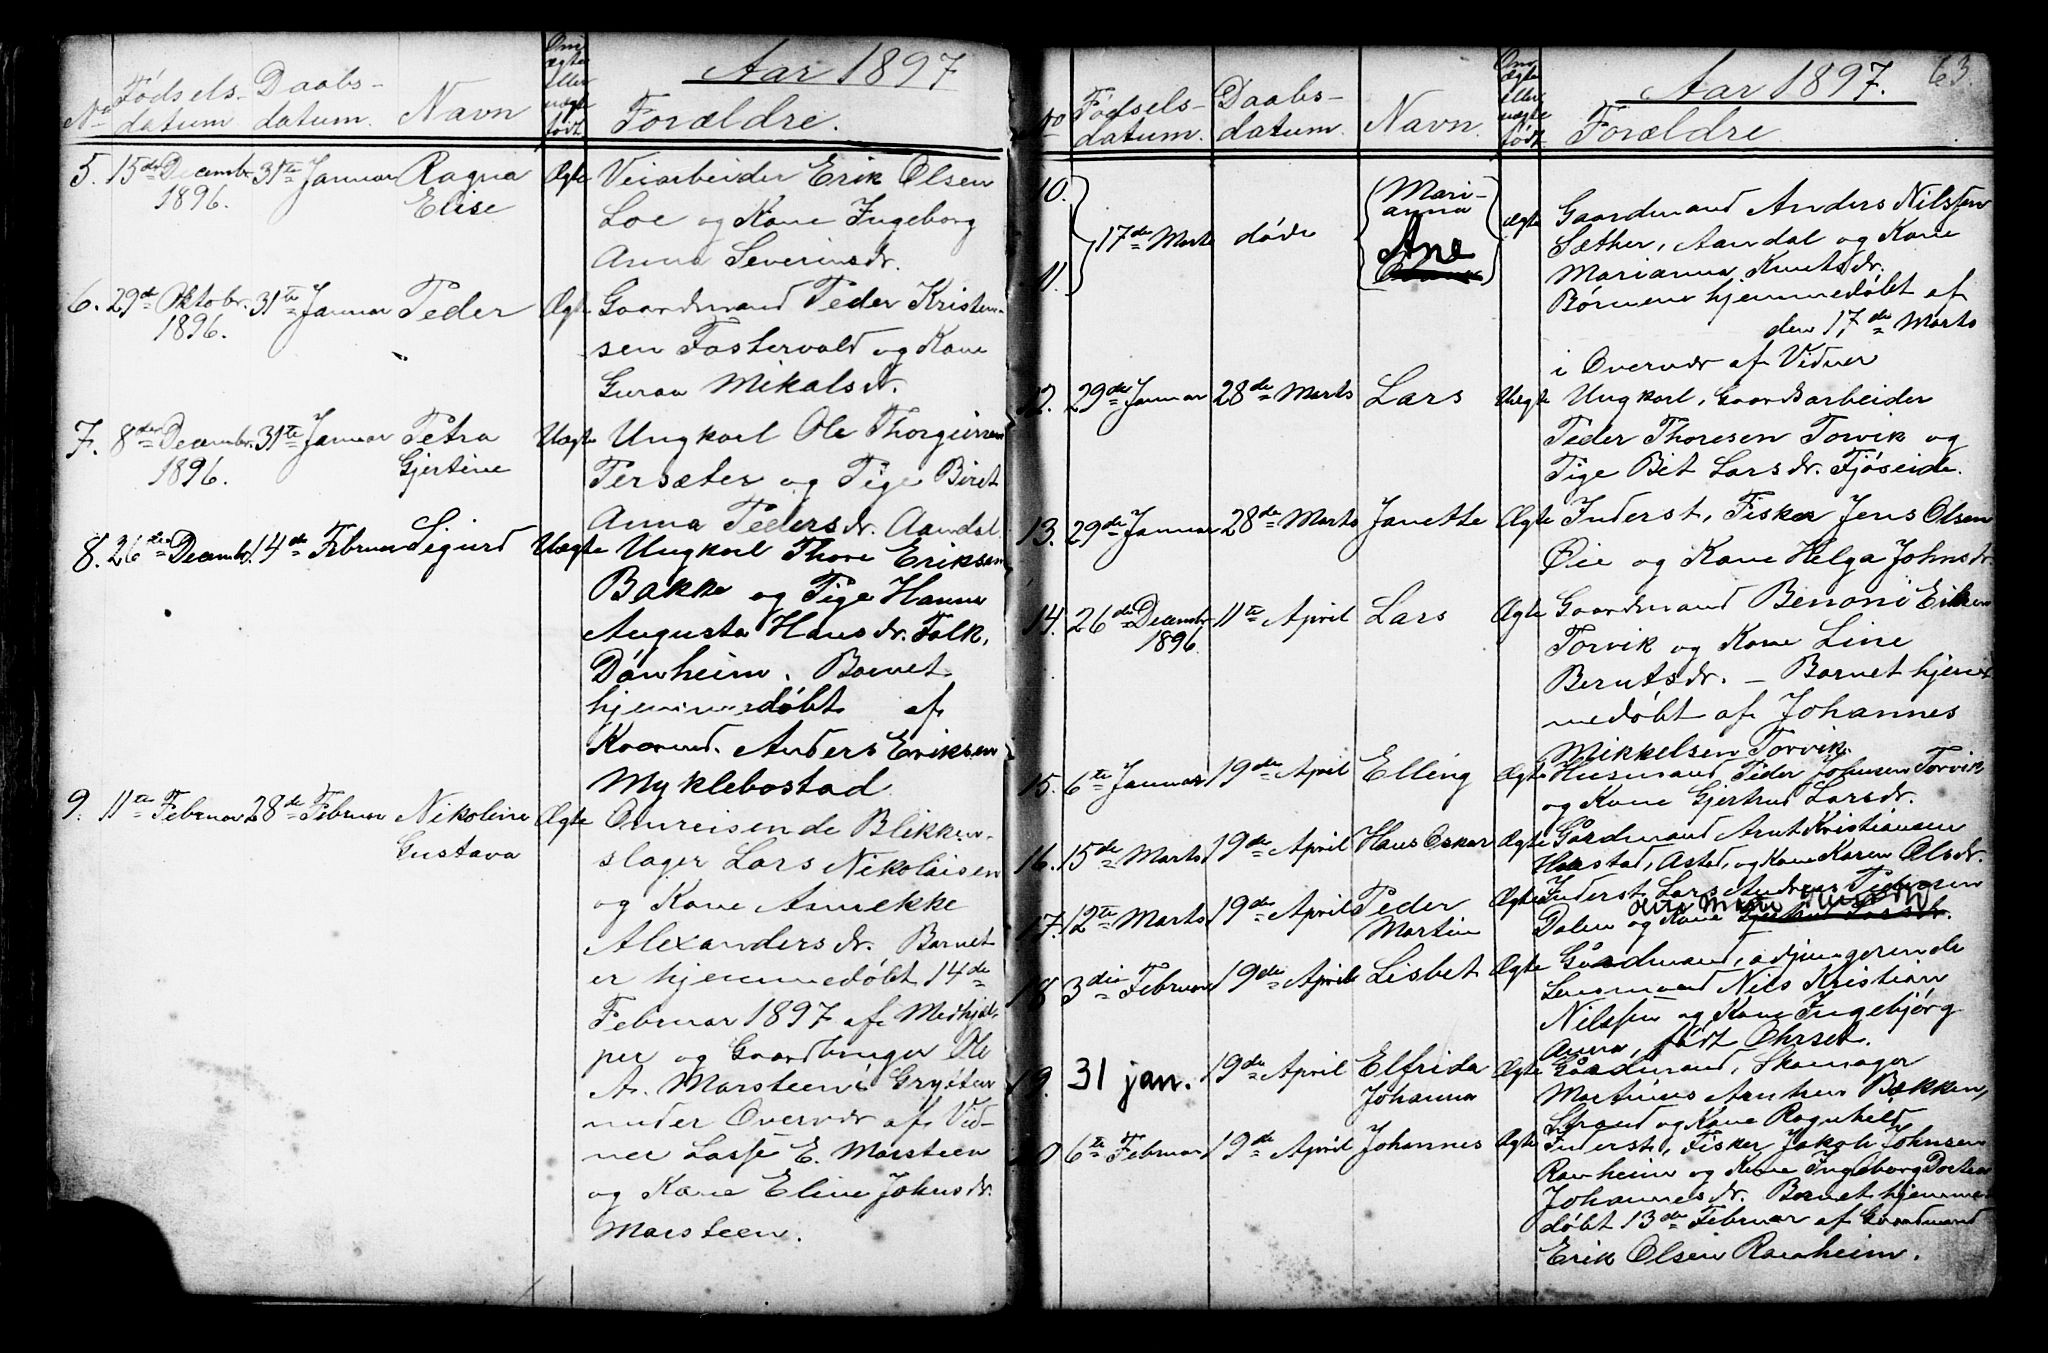 Aar 1897
No Fødsels-datum Daabs-datum. Navn Om ægte eller uægte født Forældre.
5. 15de Decembr 31te Januar Ragna Ægte Veiarbeider Erik Olsen
1896. Elise Loe og Kone Ingeborg
Anna Severinsdr.
6. 29de Oktobr. 31te Januar Peder Ægte Gaardmand Peder Kristen-
1896. sen Fostervold og Kone
Guraa Mikalsdr.
7. 8de Decembr. 31te Januar Petra Uægte Ungkarl Ole
1896. Gjertine og Pige Biret
Anna Pedersdr. Aandal
8. 26de Decembr. 14de Februar Sigurd Uægte Ungkarl Thore Eriksen
Bakke og Pige Hanna
Augusta Hansdr. Falk,
Barnet
hjemmedøbt af
Kvernd. Anders Eriksen
Myklebostad
9. 11te Februar 28de Februar Nikoline Ægte Omreisende Blikken-
Gustava slager Lars Nikolaisen
og Kone Annekke
Alexandersdr. Barnet
er hjemmedøbt 14de
Februar 1897 af Medhjæl-
per og Gaardbruger Ole
A. Marsteen i Gryten
under Overvær af Vid-
ner Lasse E. Marsteen
og Kone Eline Johnsdr.
Marsteen.
Aar 1897. 63.
No Fødsels-datum. Daabs-datum. Navn. Om Ægte eller uægte født Forældre
10. Mari- Gaardmand Anders Nilssen
anna Sæther, Aandal og Kone
11. 17de Marts døde Ane Ægte Marianna Knutsdr.
Børnene hjemmedøbt af
den 17de Marts
i Overvær af Vidner
12. 29de Januar 28de Marts Lars Uægte Ungkarl, Gaardsarbeider
Peder Thoresen Torvik og
Pige Bet Larsdr. Fjøseide.
13. 29de Januar 28de Marts Janette Ægte Inderst, Fisker Jens Olsen
Øie og Kone Helga Johnsdr.
14. 26de Decembr 11te April Lars Ægte Gaardmand Benoni Eriksen
1896. Torvik og Kone Line
Berntsdr. – Barnet hjem-
medøbt af Johannes
Mikkelsen Torvik.
15. 6te Januar 19de April Elling Ægte Husmand Peder Johnsen Torvik
og Kone Gjertrud Larsdr.
16. 15de Marts 19de April Hans Oskar Ægte Gårdmand Arnt Kristiansen
Harstad, Astad, og Kone Karen Olsdr.
17. 12te Marts 19de April Peder Ægte Inderst Lars Andreas Pedersen
Martin Dalen og Kone
18 3die Februar 19de April Lisbet Ægte Gårdmand, adjungerende
Lensmand Nils Kristian
Nilssen og Kone Ingebjørg
Anna, født Ohrset.
19. 31 jan. 19de April Elfrida Ægte Gårdmand, Skomager
Johanna Martinus Arntsen Bækken,
Strand og Kone Ragnhild
20 6te Februar 19de April Johannes Ægte Inderst, Fisker Jakob Johnsen
Ranheim og Kone Ingeborg Dortea
Johannesdr. Barnet hjemme-
døbt 13de Februar af Gaardmand
Erik Olsen Ranheim.